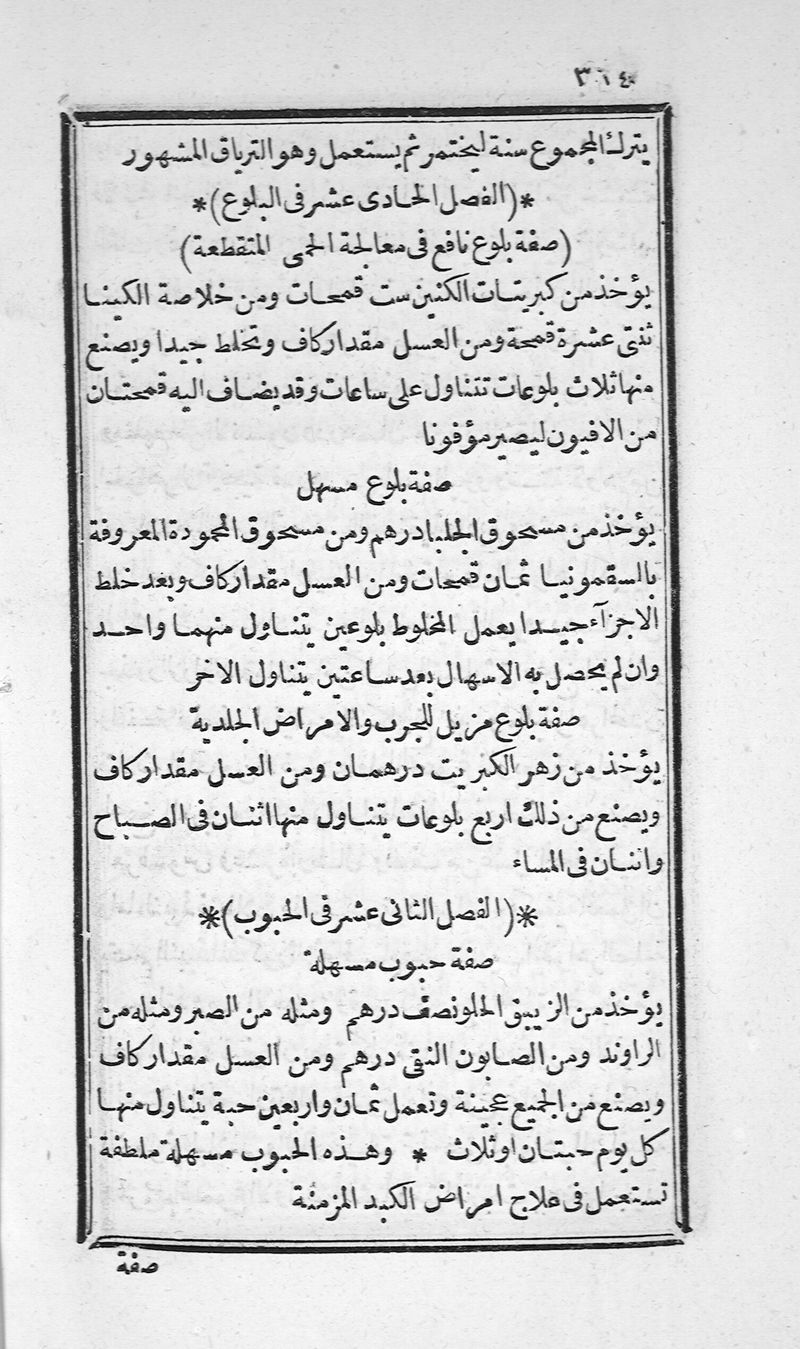 ٣١٤
يترك المجموع سنة ليختمر ثم يستعمل وهو الترياق المشهور
*(الفصل الحادى عشر فى البلوع)*
(صفة بلوع نافع فى معالجة الحمى المتقطعة)
يؤخذ من كبريتات الكنين ست قمحات ومن خلاصة الكينا
ثنتى عشرة قمحة ومن العسل مقدار كاف وتخلط جيدا ويصنع
منها ثلاث بلوعات تتناول على ساعات وقد يضاف اليه قمحتان
من الافيون ليصير مؤفونا
صفة بلوع مسهل
يؤخذ من مسحوق الجلبا درهم ومن مسحوق المحمودة المعروفة
بالسقمونيا ثمان قمحات ومن العسل مقدار كاف وبعد خلط
الاجزآء جيدا يعمل المخلوط بلوعين يتناول منهما واحد
وان لم يحصل به الاسهال بعد ساعتين يتناول الاخر
صفة بلوع مزيل للجرب والامراض الجلدية
يؤخذ من زهر الكبريت درهمان ومن العسل مقدار كاف
ويصنع من ذلك اربع بلوعات يتناول منها اثنان فى الصباح
واثنان فى المساء
*(الفصل الثانى عشر فى الحبوب)*
صفة حبوب مسهلة
يؤخذ من الزيبق الحلو نصف درهم ومثله من الصبر ومثله من
الراوند ومن الصابون النقى درهم ومن العسل مقدار كاف
ويصنع من الجميع عجينة وتعمل ثمان واربعين حبة يتناول منها
كل يوم حبتان او ثلاث * وهذه الحبوب مسهلة ملطفة
تستعمل فى علاج امراض الكبد المزمنة
صفة